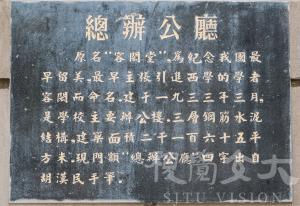 總辦公廳
原名“容閎堂”。爲紀念我國最
早留美、最早主張引進西學的學者
容閎而命名。建于一九三三年三月。
是學校主要辦公樓。二層鋼筋水泥
結構。建築面積二千一百六十五平
方米。現門額“總辦公廳”四字出自
胡漢民手筆。
SITU VISION